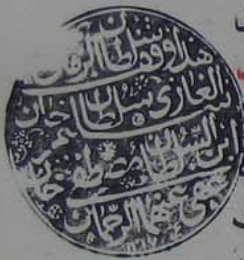 هذا وقف سلطان الزمان
الغازي سلطان سليم خان
ابن السلطان مصطفى خان
عفى عنهما الرحمن